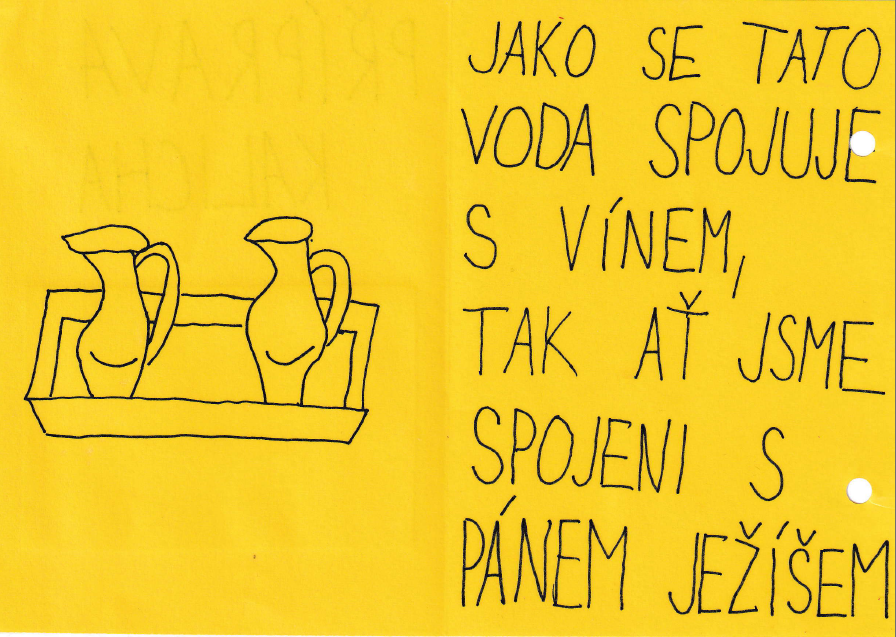 JAKO SE TATO
VODA SPOJUJE
S VÍNEM,
TAK AŤ JSME
SPOJENI S
PÁNEM JEŽÍŠEM
PŘÍPRAVA
KALICHA